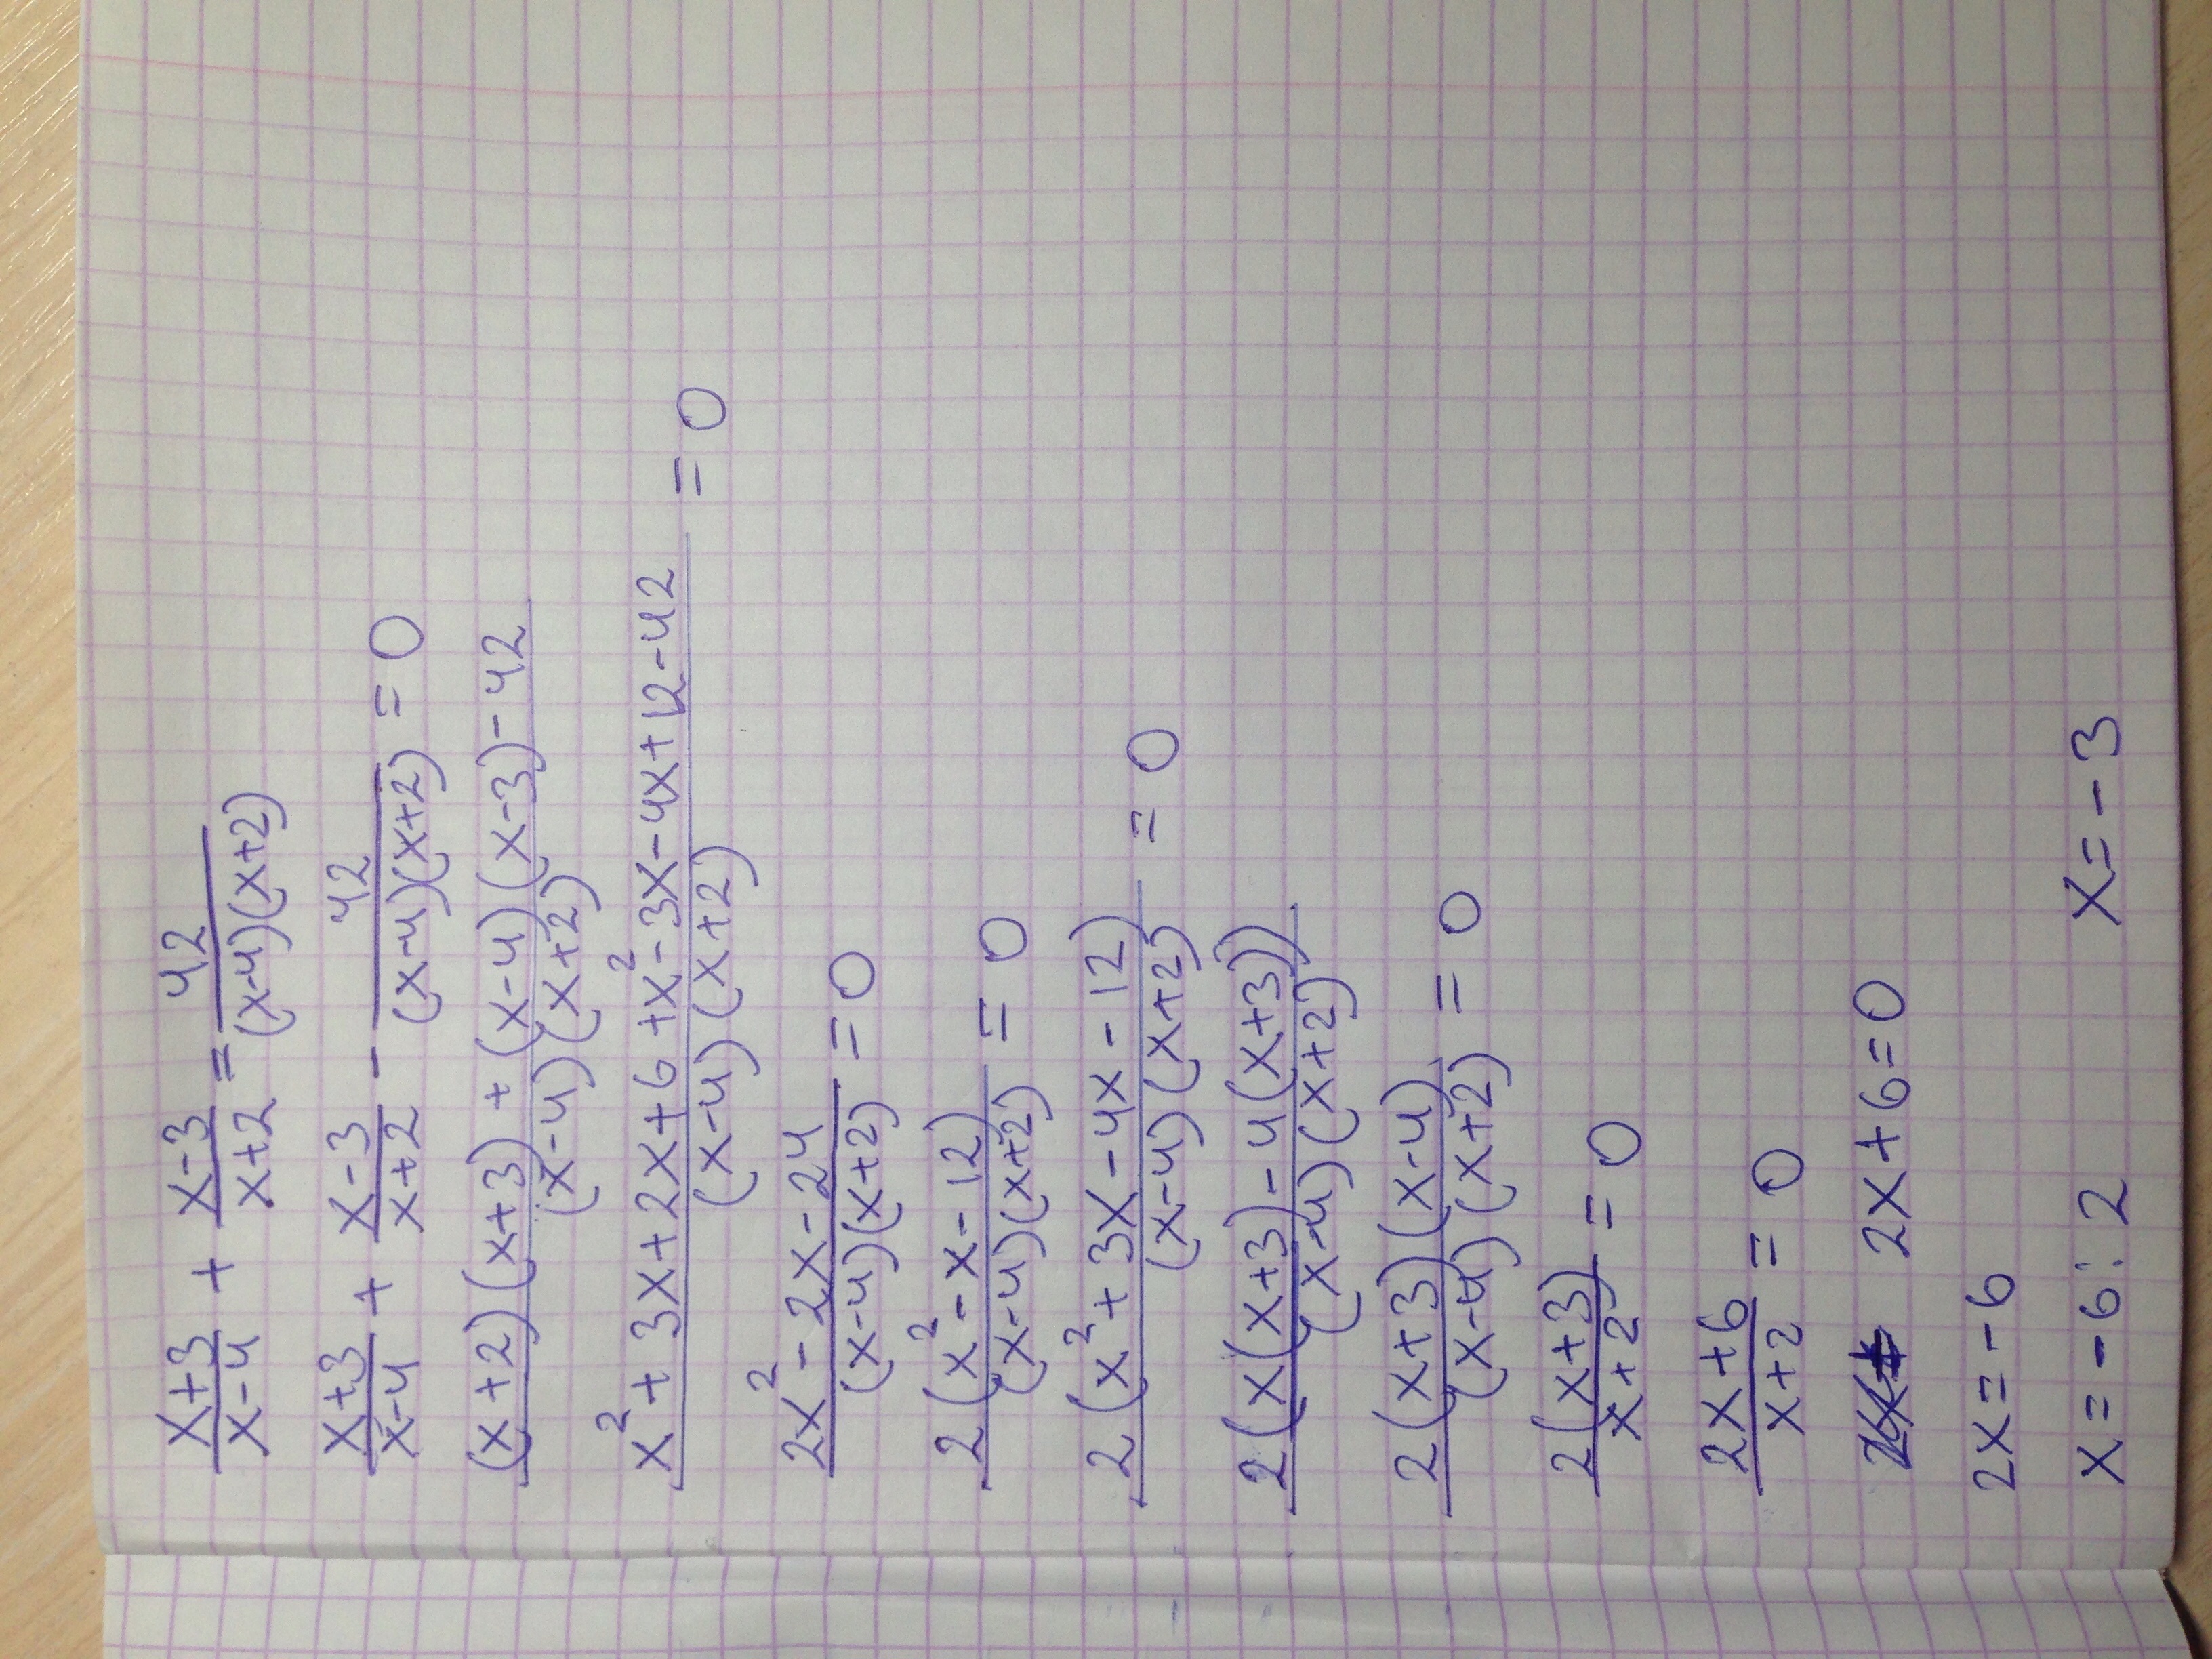 (x+3)/(x-4) + (x-3)/(x+2) = 42/((x-4)(x+2))
(x+3)/(x-4) + (x-3)/(x+2) - 42/((x-4)(x+2)) = 0
((x+2)(x+3)+(x-4)(x-3)-42)/((x-4)(x+2))
(x²+3x+2x+6+x²-3x-4x+12-42)/((x-4)(x+2)) = 0
(2x²-2x-24)/((x-4)(x+2)) = 0
2(x²-x-12)/((x-4)(x+2)) = 0
2(x²+3x-4x-12)/((x-4)(x+2)) = 0
2(x(x+3)-4(x+3))/((x-4)(x+2))
2(x+3)(x-4)/((x-4)(x+2)) = 0
2(x+3)/(x+2) = 0
(2x+6)/(x+2) = 0
2x+6=0
2x=-6
x=-6:2 x=-3